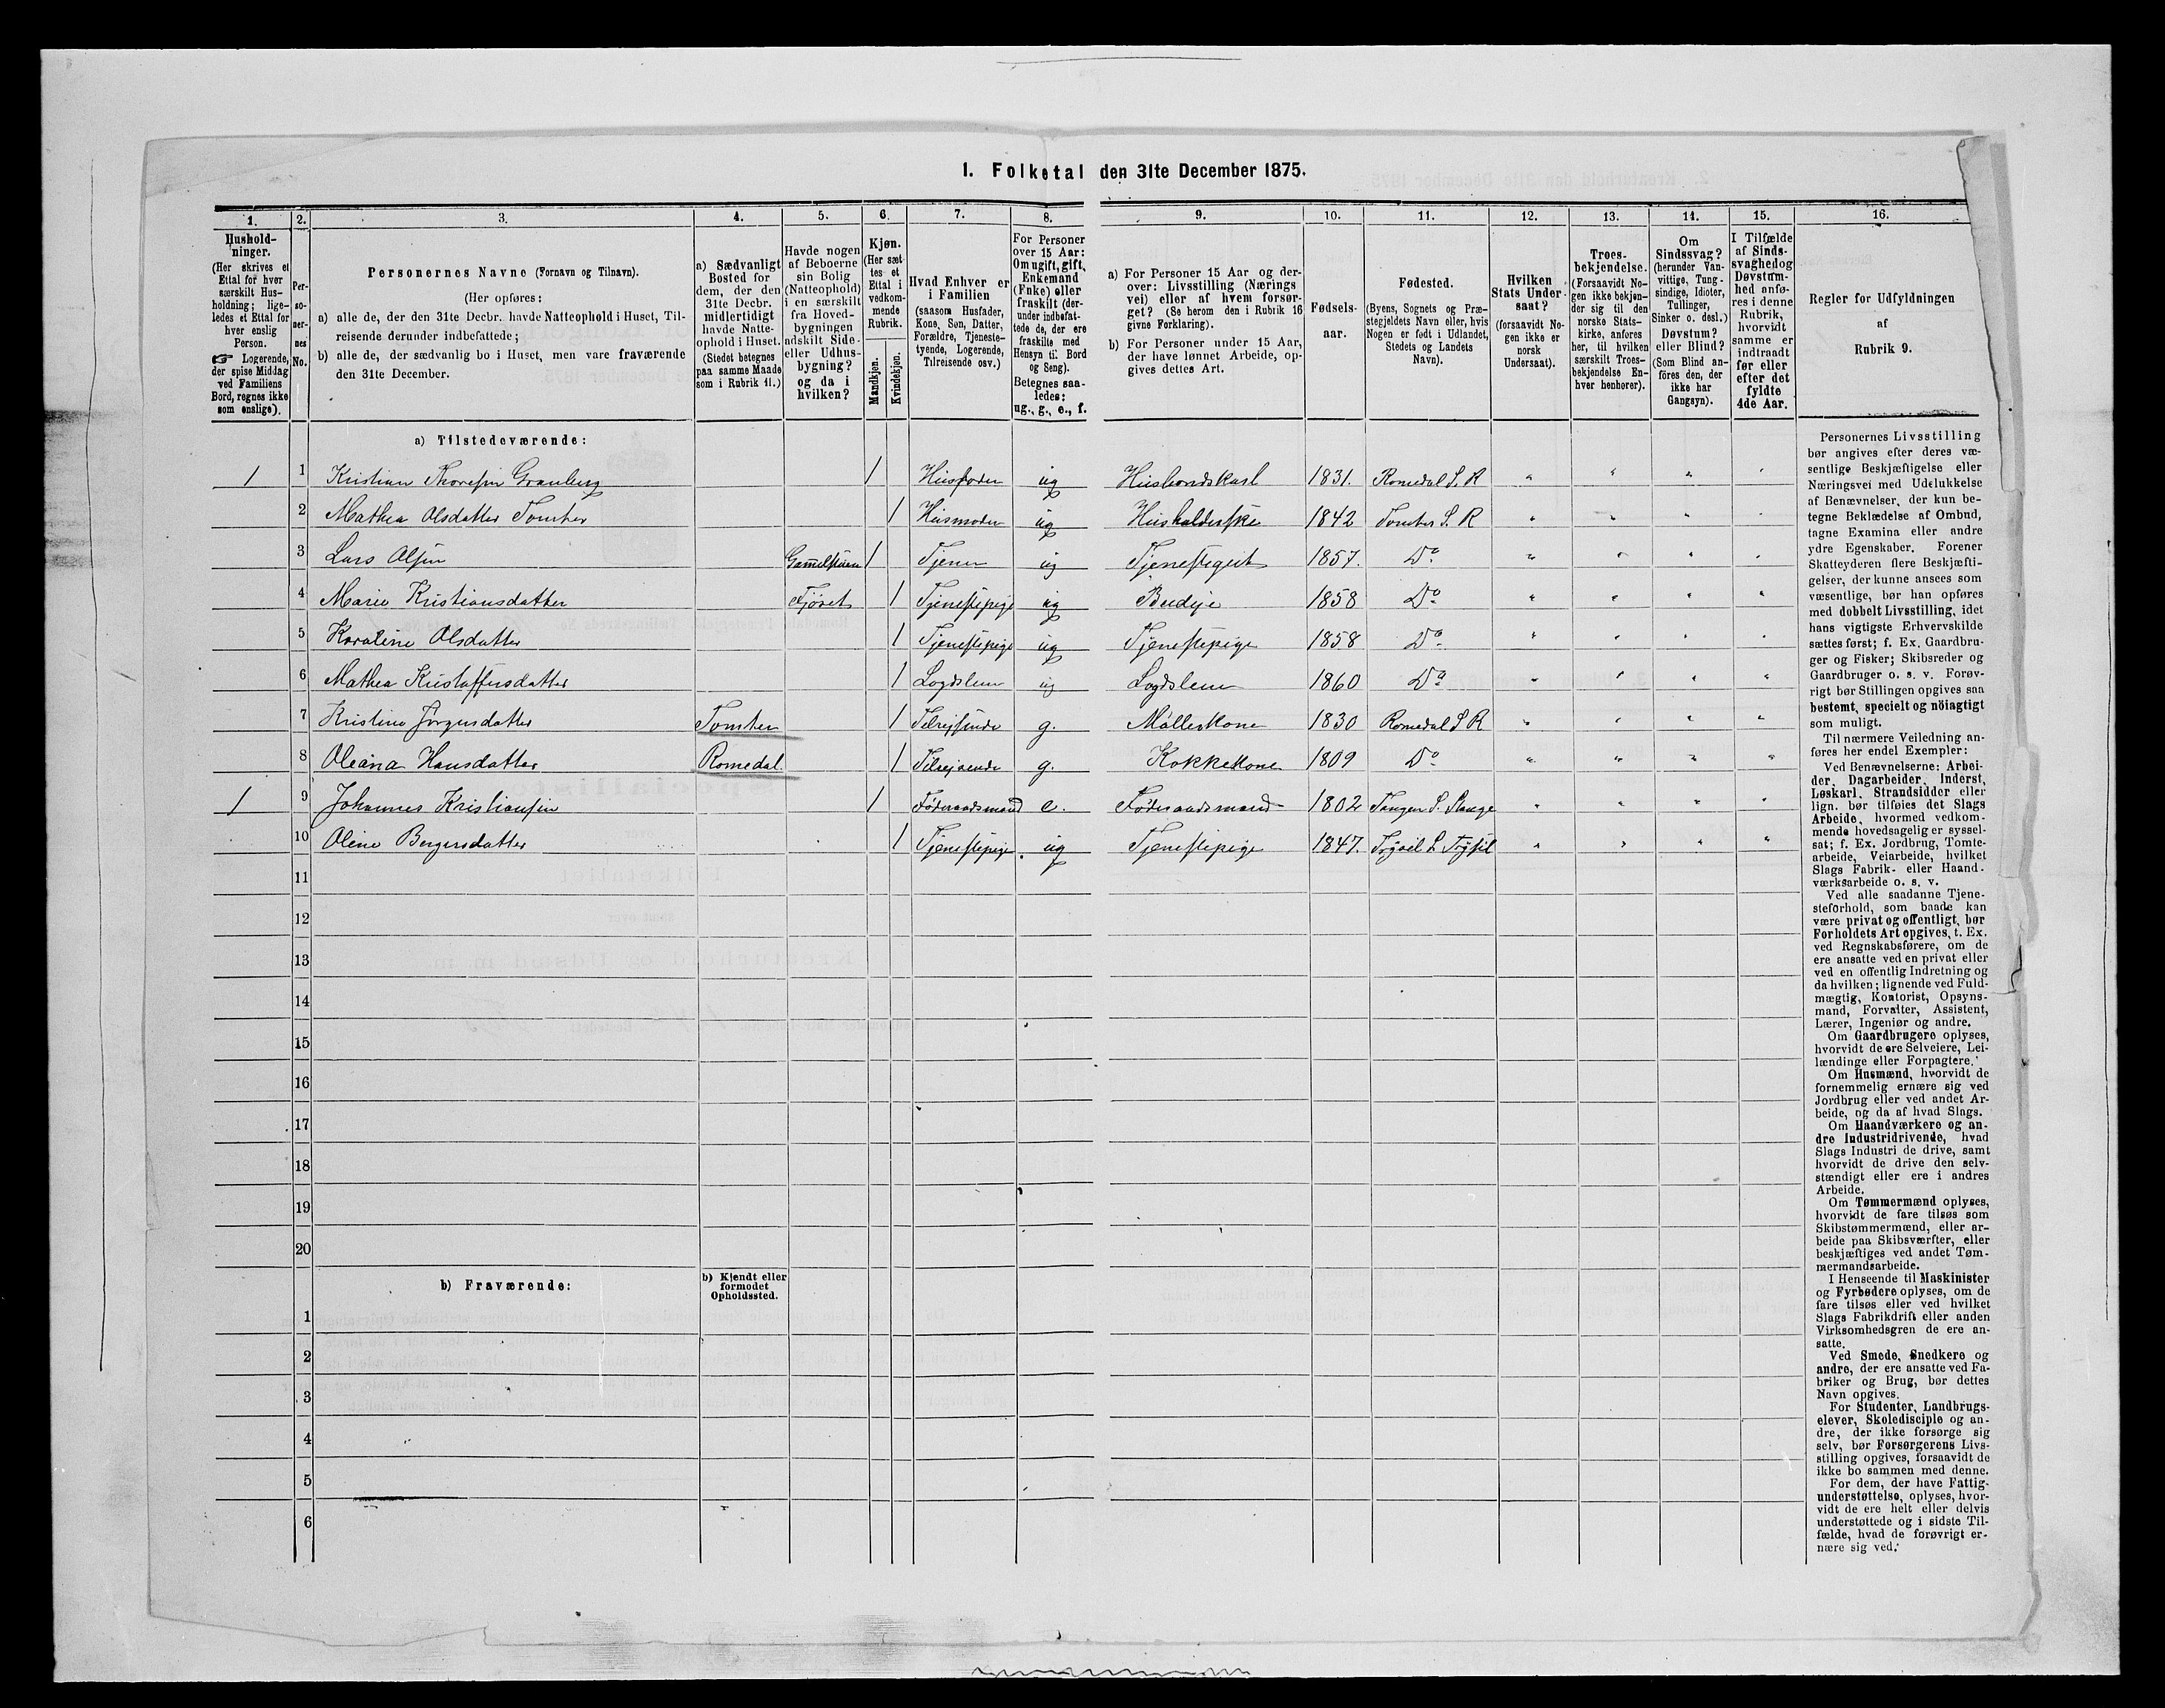 1. Folketal den 31te December 1875.
1. 2. 3. 4. 5. 6. 7. 8. 9. 10. 11. 12. 13. 14. 15. 16.
Hushold-
ninger.
(Her skrives et
Ettal for hver
særskilt Hus-
holdning; lige-
ledes et Ettal for
hver enslig
Person.
☞ Logerende,
der spise Middag
ved Familiens
Bord, regnes ikke
som enslige).
Per-
so-
ner-
nes
No.
Personernes Navne (Fornavn og Tilnavn).
(Her opføres:
a) alle de, der den 31te Decbr. havde Natteophold i Huset, Til-
reisende derunder indbefattede;
b) alle de, der sædvanlig bo i Huset, men vare fraværende
den 31te December.
a) Sædvanligt
Bosted for
dem, der den
31te Decbr.
midlertidigt
havde Natte-
ophold i Huset.
(Stedet betegnes
paa samme Maade
som i Rubrik 11.)
Havde nogen
af Beboerne
sin Bolig
(Natteophold)
i en særskilt
fra Hoved-
bygningen
adskilt Side-
eller Udhus-
bygning?
og da i
hvilken?
Kjøn.
(Her sæt-
tes et
Ettal i
vedkom-
mende
Rubrik.
Mandkjøn.
Kvindekjøn.
Hvad Enhver er
i Familien
(saasom Husfader,
Kone, Søn, Datter,
Forældre, Tjeneste-
tyende, Logerende,
Tilreisende osv.)
For Personer
over 15 Aar:
Om ugift, gift,
Enkemand
(Enke) eller
fraskilt (der-
under indbefat-
tede de, der ere
fraskilte med
Hensyn til Bord
og Seng).
Betegnes saa-
ledes:
ug., g., e., f.
a) For Personer 15 Aar og der-
over: Livsstilling (Nærings
vei) eller af hvem forsør-
get? (Se herom den i Rubrik 16
givne Forklaring).
b) For Personer under 15 Aar,
der have lønnet Arbeide, op-
gives dettes Art.
Fødsels-
aar.
Fødested.
(Byens, Sognets og Præ-
stegjeldets Navn eller, hvis
Nogen er født i Udlandet,
Stedets og Landets
Navn).
Hvilken
Stats Under-
saat?
(forsaavidt No-
gen ikke er
norsk
Undersaat).
Troes-
bekjendelse.
(Forsaavidt No-
gen ikke bekjen-
der sig til den
norske Stats-
kirke, anføres
her, til hvilken
særskilt Troes-
bekjendelse En-
hver henhører).
Om
Sindssvag?
(herunder Van-
vittige, Tung-
sindige, Idioter,
Tullinger,
Sinker o. desl.)
Døvstum?
eller Blind?
(Som Blind an-
föres den, der
ikke har
Gangsyn).
I Tilfælde
af Sinds-
svaghed og
Døvstum-
hed anfø-
res i denne
Rubrik,
hvorvidt
samme er
indtraadt
før eller
efter det
fyldte
4de Aar.
Regler for Udfyldningen
af
Rubrik 9.
a) Tilstedeværende:
1 1 Kristian Thoresen Granberg 1 Husfader ug Husbondskarl 1831. Romedal S. R " " " "
2 Mathea Olsdatter Tomter 1 Husmoder ug Husholderske 1842 Tomter S. R " " " "
3 Lars Olsen Gammelstuen 1 Tjener ug Tjenestegut 1857. Do " " " "
4 Marie Kristiansdatter Fjøset 1 Tjenestepige ug Budeje 1858 Do " " " "
5 Karoline Olsdatter 1 Tjenestepige ug Tjenestepige 1858 Do " " " "
6 Mathea Kristoffersdatter 1 Logdslem ug Logdslem 1860 Do " " " "
7 Kristine Jørgensdatter Tomter 1 Tilrejsende g. Møllerkone 1830 Romedal S R " " " "
8 Oleana Hansdatter Romedal 1 Tilrejsende g. Kokkekone 1809 Do " " " "
1 9 Johannes Kristiansen 1 Føderaadsmand e. Føderaadsmand 1802 Tangen S. Stange " " " "
10 Oline Bergersdatter 1 Tjenestepige ug Tjenestepige 1847. Trysil S. Trysil " " " "
11
12
13
14
15
16
17
18
19
20
b) Fraværende: b) Kjendt eller
formodet
Opholdssted.
1
2
3
4
5
6
Personernes Livsstilling
bør angives efter deres væ-
sentlige Beskjæftigelse eller
Næringsvei med Udelukkelse
af Benævnelser, der kun be-
tegne Beklædelse af Ombud,
tagne Examina eller andre
ydre Egenskaber. Forener
Skatteyderen flere Beskjæfti-
gelser, der kunne ansees som
væsentlige, bør han opføres
med dobbelt Livsstilling, idet
hans vigtigste Erhvervskilde
sættes først; f. Ex. Gaardbru-
ger og Fisker; Skibsreder og
Gaardbruger o. s. v. Forøv-
rigt bør Stillingen opgives saa
bestemt, specielt og nöiagtigt
som muligt.
Til nærmere Veiledning an-
føres her endel Exempler:
Ved Benævnelserne: Arbei-
der, Dagarbeider, Inderst,
Løskarl, Strandsidder eller
lign. bør tilføies det Slags
Arbeide, hvormed vedkom-
mende hovedsagelig er syssel-
sat; f. Ex. Jordbrug, Tomte-
arbeide, Veiarbeide, hvilket
Slags Fabrik- eller Haand-
værksarbeide o. s. v.
Ved alle saadanne Tjene-
steforhold, som baade kan
være privat og offentligt, bør
Forholdets Art opgives, t. Ex.
ved Regnskabsførere, om de
ere ansatte ved en privat eller
ved en offentlig Indretning og
da hvilken; lignende ved Fuld-
mægtig, Kontorist, Opsyns-
mand, Forvalter, Assistent,
Lærer, Ingeniør og andre.
Om Gaardbrugere oplyses,
hvorvidt de ere Selveiere, Lei-
lændinge eller Forpagtere.
Om Husmænd, hvorvidt de
fornemmelig ernære sig ved
Jordbrug eller ved andet Ar-
beide, og da af hvad Slags.
Om Haandværkere og an-
dre Industridrivende, hvad
Slags Industri de drive, samt
hvorvidt de drive den selv-
stændigt eller ere i andres
Arbeide.
Om Tømmermænd oplyses,
hvorvidt de fare tilsøs som
Skibstømmermænd, eller ar-
beide paa Skibsværfter, eller
beskjæftiges ved andet Tøm-
mermandsarbeide.
I Henseende til Maskinister
og Fyrbødere oplyses, om de
fare tilsøs eller ved hvilket
Slags Fabrikdrift eller anden
Virksomhedsgren de ere an-
satte.
Ved Smede, Snedkere og
andre, der ere ansatte ved Fa-
briker og Brug, bør dettes
Navn opgives.
For Studenter, Landbrugs-
elever, Skoledisciple og an-
dre, der ikke forsørge sig
selv, bør Forsørgerens Livs-
stilling opgives, forsaavidt de
ikke bo sammen med denne.
For dem, der have Fattig-
understøttelse, oplyses, hvor-
vidt de ere helt eller delvis
understøttede og i sidste Til-
fælde, hvad de forøvrigt er-
nære sig ved.